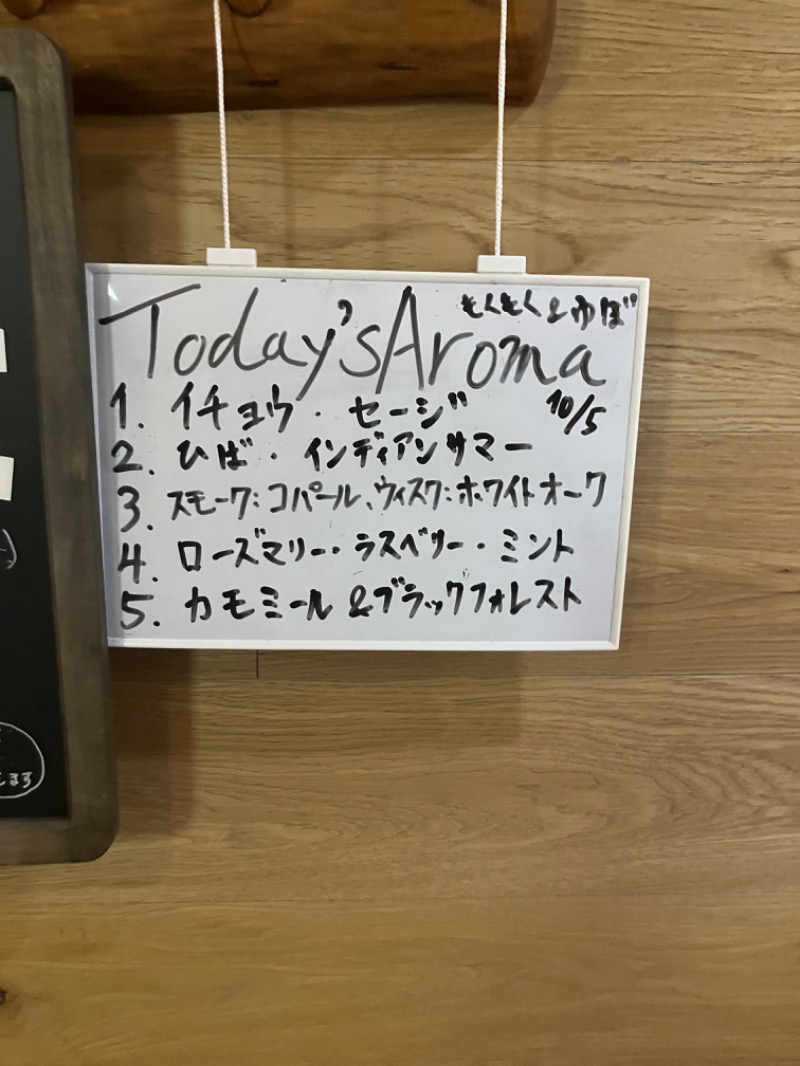 もくもく&ゆば
Today's Aroma
10/5
1. イチョウ・セージ
2. ひば・インディアンサマー
3. スモーク:コパール、ウィスク:ホワイトオーク
4. ローズマリー・ラズベリー・ミント
5. カモミール&ブラックフォレスト
します